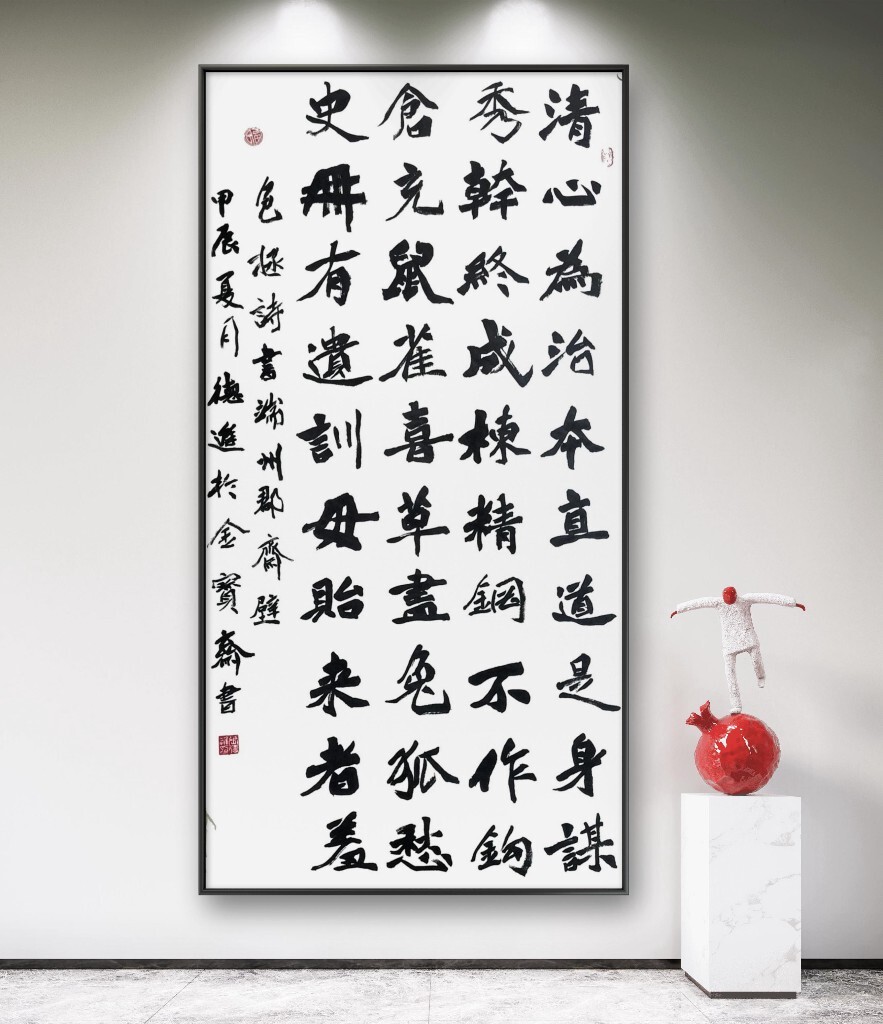 清心為治本直道是身謀
秀幹終成棟精鋼不作鈎
倉充鼠雀喜草盡兔狐愁
史冊有遺訓毋貽来者羞
包拯詩書端州郡齋壁
甲辰夏月德進於金寶齋書